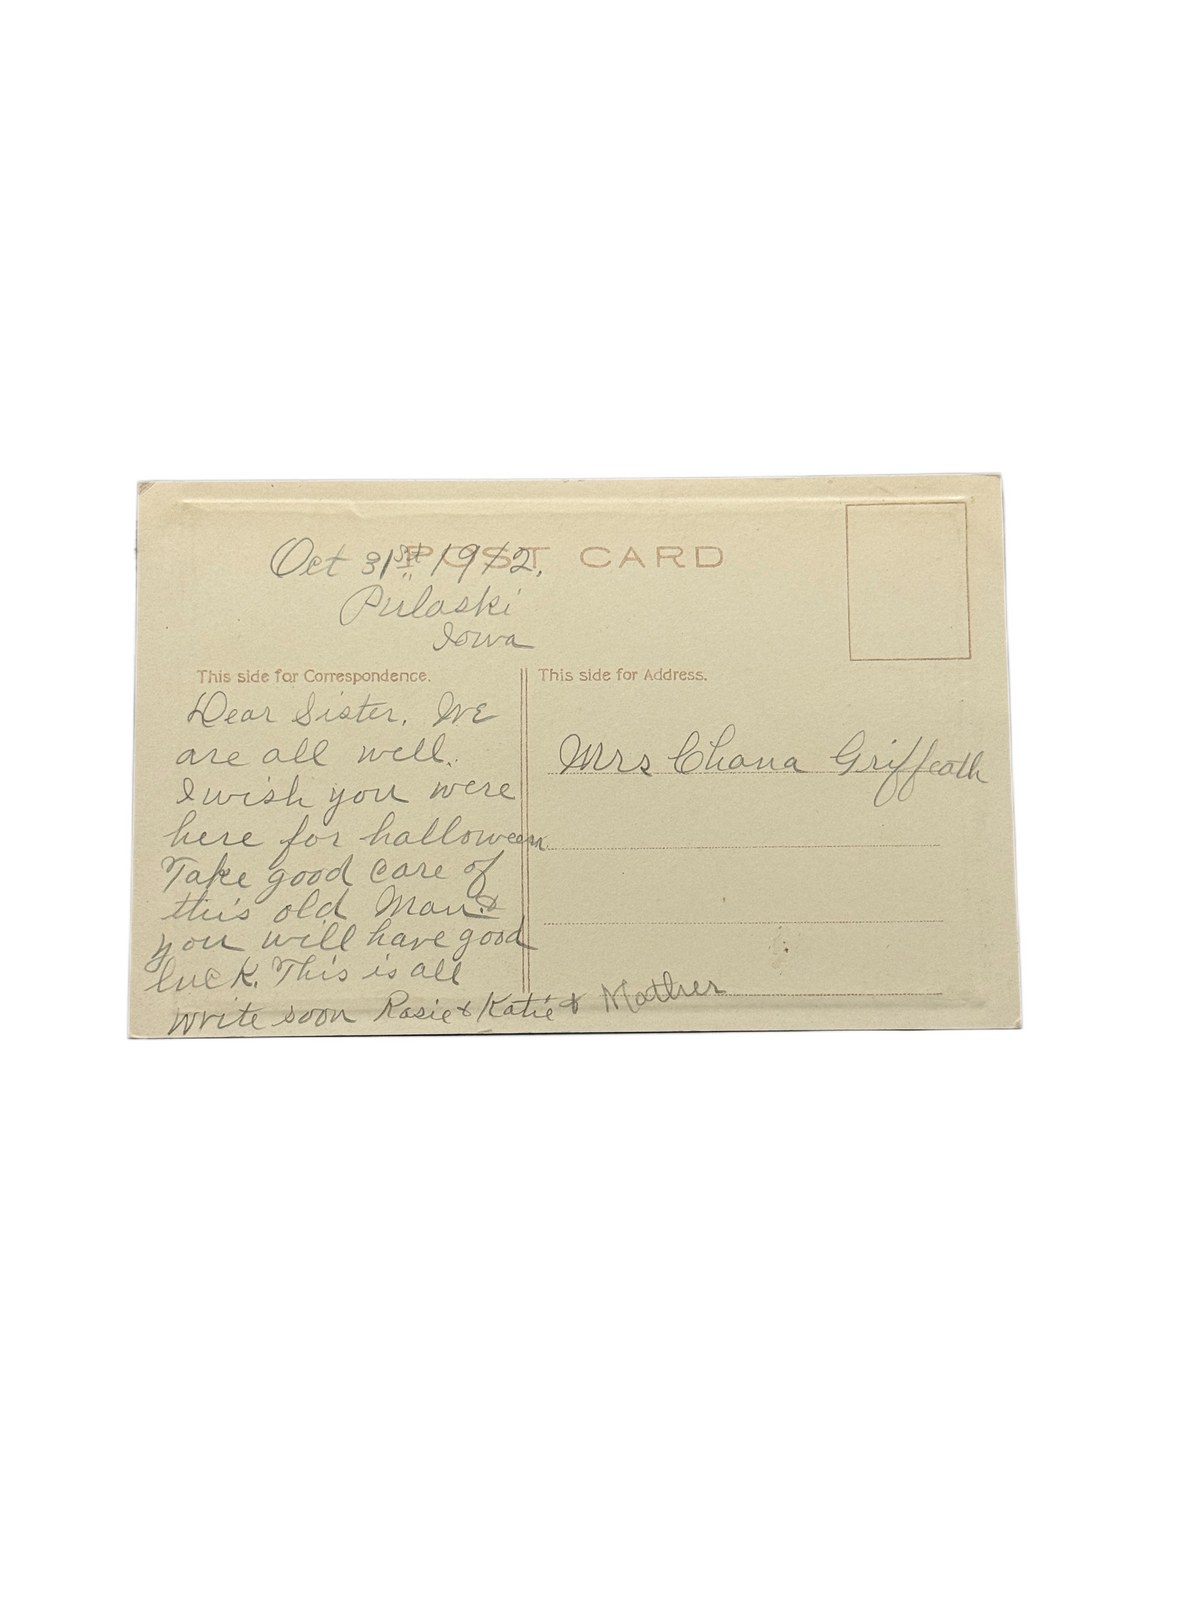 POST CARD
Oct 31st 1912.
Pulaski
Iowa
This side for Correspondence.
Dear Sister. We
are all well.
I wish you were
here for halloween.
Take good care of
this old Man &
you will have good
luck. This is all
write soon Rosie & Katie & Mother
This side for Address.
Mrs Chana Griffeath